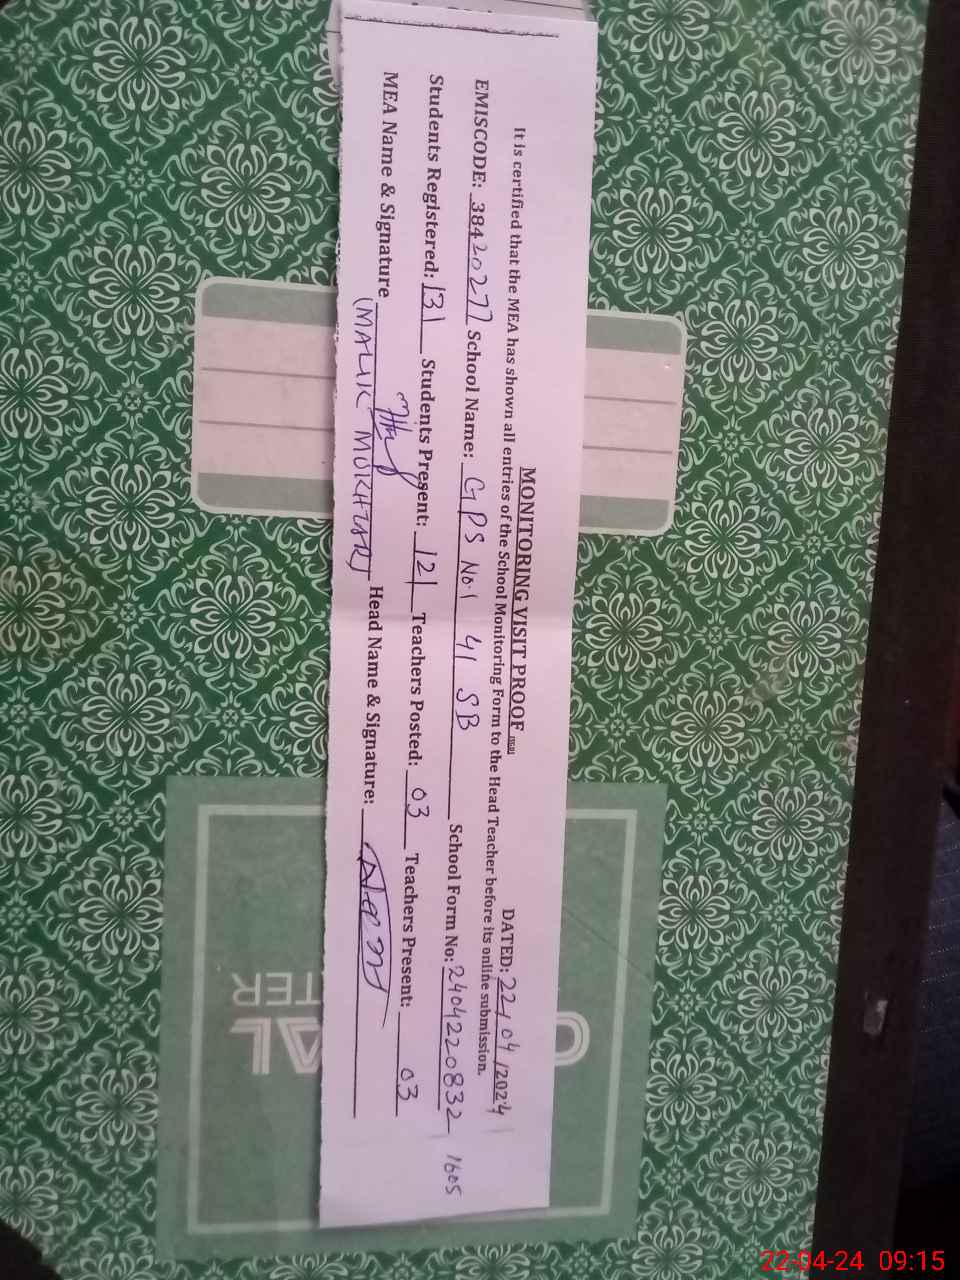 MONITORING VISIT PROOF
DATED: 22/04/2024
It is certified that the MEA has shown all entries of the School Monitoring Form to the Head Teacher before its online submission.
EMISCODE: 38420277 School Name: GPS No.1 41 SB School Form No: 2404220832 1605
Students Registered: 131 Students Present: 121 Teachers Posted: 03 Teachers Present: 03
MEA Name & Signature Head Name & Signature:
(MALIK MUKHTAR)
TER
AL
22-04-24 09:15